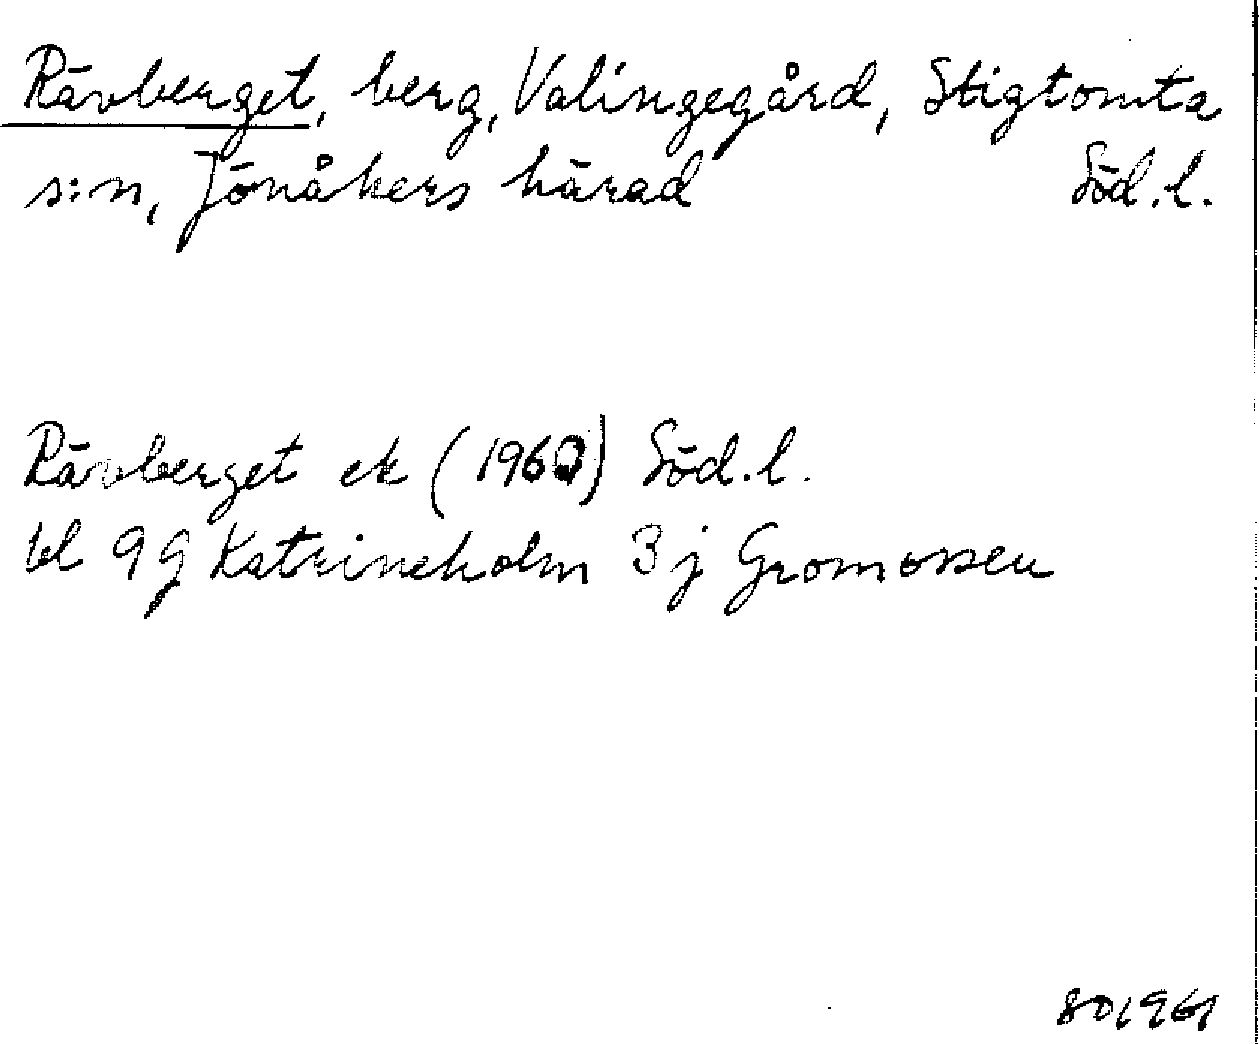 Rävberget, berg, Valingegård, Stigtomta
s:n, Jönåkers härad Söd.l.
Rävberget ek (1960) Söd.l.
bl 9 G Katrineholm 3 j Gromossen
801961